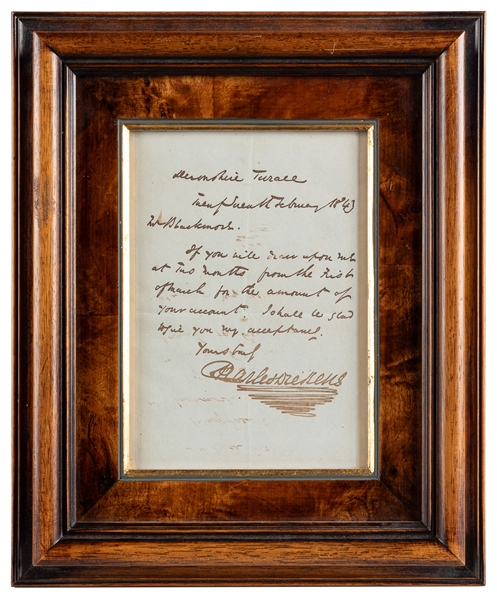 Devonshire Terrace
February 1843
Mr Blackmore.
If you will draw upon me
at two months from the first
of March for the amount of
your account I shall be glad
to give you my acceptance.
Yours truly
Charles Dickens